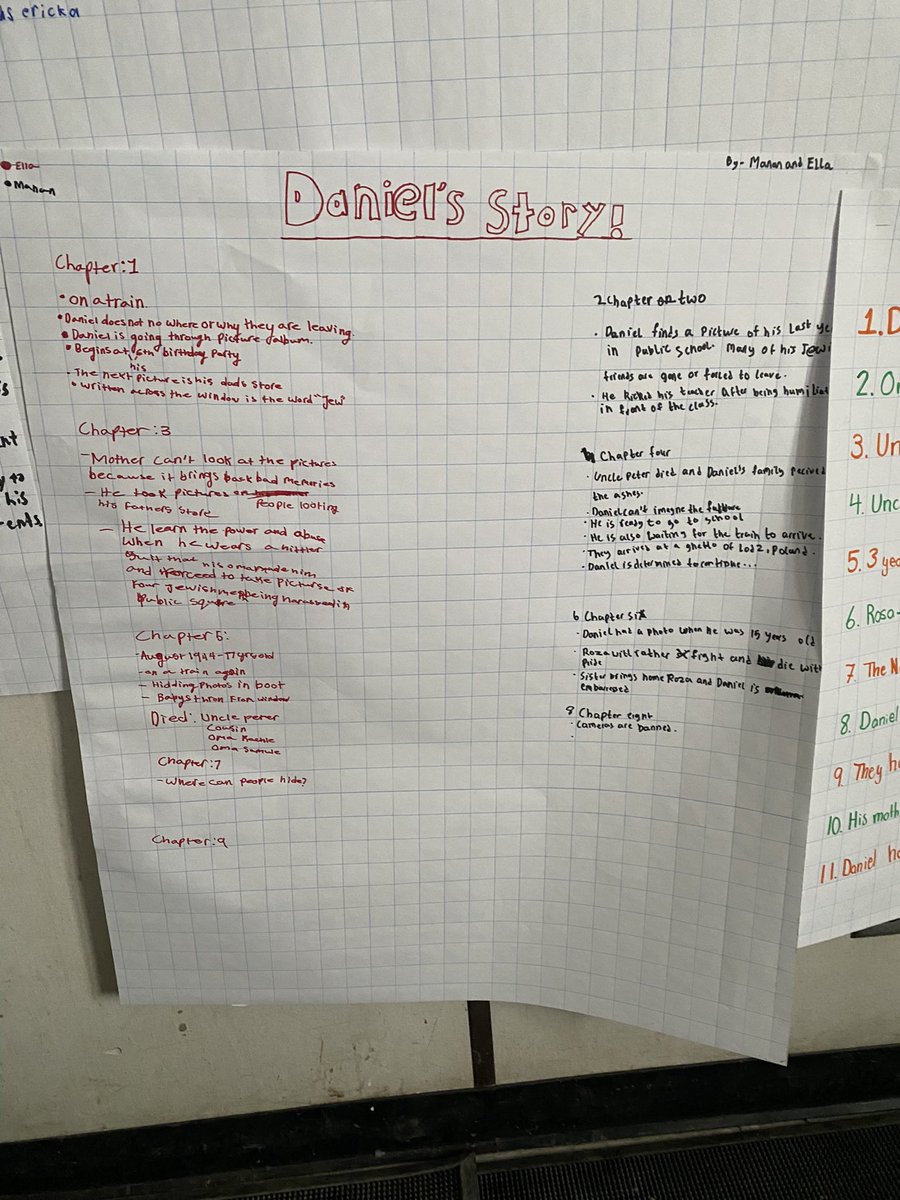 as ericka
Ella
Manan
By- Manan and Ella
Daniel's Story!
Chapter:1
• on a train.
• Daniel does not no where or why they are leaving.
• Daniel is going through picture album.
• Begins at his 6th birthday party
• The next picture is his dads store
• written across the window is the word "Jew"
Chapter:3
- Mother can't look at the pictures
because it brings back bad memories
- He took pictures on people looting
his fathers store
- He learn the power and abuse
when he wears a hittler
and forceed to take picturse of
four Jewish men being harassed in
public square
Chapter 5:
- August 1944 - 17 yrs old
- on a train again
- Hidding photos in boot
- Babys thron from window
Died: Uncle peter
Cousin
Oma
Oma
Chapter:7
- Where can people hide?
Chapter:9
2 Chapter two
• Daniel finds a picture of his last
in public school. Many of his
friends are gone or forced to leave.
• He kicked his teacher After being
in front of the class.
Chapter four
• Uncle Peter died and Daniel's family
the ashes.
• Daniel can't imagne the
• He is ready to go to school
• He is also waiting for the train to arrive.
• They arrived at a ghetto of Lodz, Poland.
• Daniel is determined to
6 Chapter six
• Daniel had a photo when he was 15 years old
• Roza will rather fight and die with
Pride
• Sister brings home Roza and Daniel is
embarresed
8 Chapter eight
• Cameras are banned.
1. D
2. On
3. Un
4. Unc
5. 3 yea
6. Rosa
7. The N
8. Daniel
9. They ha
10. His moth
11. Daniel ha
nt
y to
his
ents